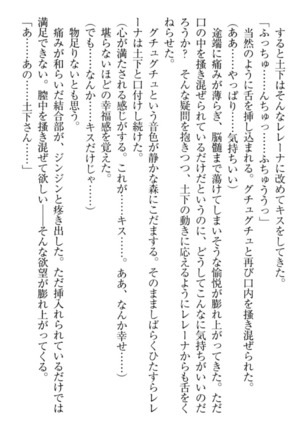 すると土下はそんなレレーナに改めてキスをしてきた。
「ふっちゅ……んちゅっ……ふちゅううっ」
当然のように舌を挿し込まれる。グチュグチュと再び口内を掻き混ぜられた。
(ああ……やっぱり……気持ちいい)
途端に痛みが薄らぎ、脳髄まで蕩けてしまいそうな愉悦が膨れ上がってきた。ただ
口の中を掻き混ぜられているだけだというのに、どうしてこんなに気持ちがいいのだ
ろうか? そんな疑問を抱きつつ、土下の動きに応えるようにレレーナからも舌をく
ねらせた。
グチュグチュという音色が静かな森にこだまする。そのまましばらくひたすらレレ
ーナは土下と口付けし続けた。
(心が満たされる感じがする。これが……キス……。ああ、なんか幸せ……)
堪らないほどの幸福感を覚えた。
(でも……なんか……キスだけじゃ……)
物足りないとも思う。
痛みが和らいだ結合部が、ジンジンと疼き出した。ただ挿入れられているだけでは
満足できない。膣中を掻き混ぜて欲しい――そんな欲望が膨れ上がってくる。
「あ……あの……土下さん……」